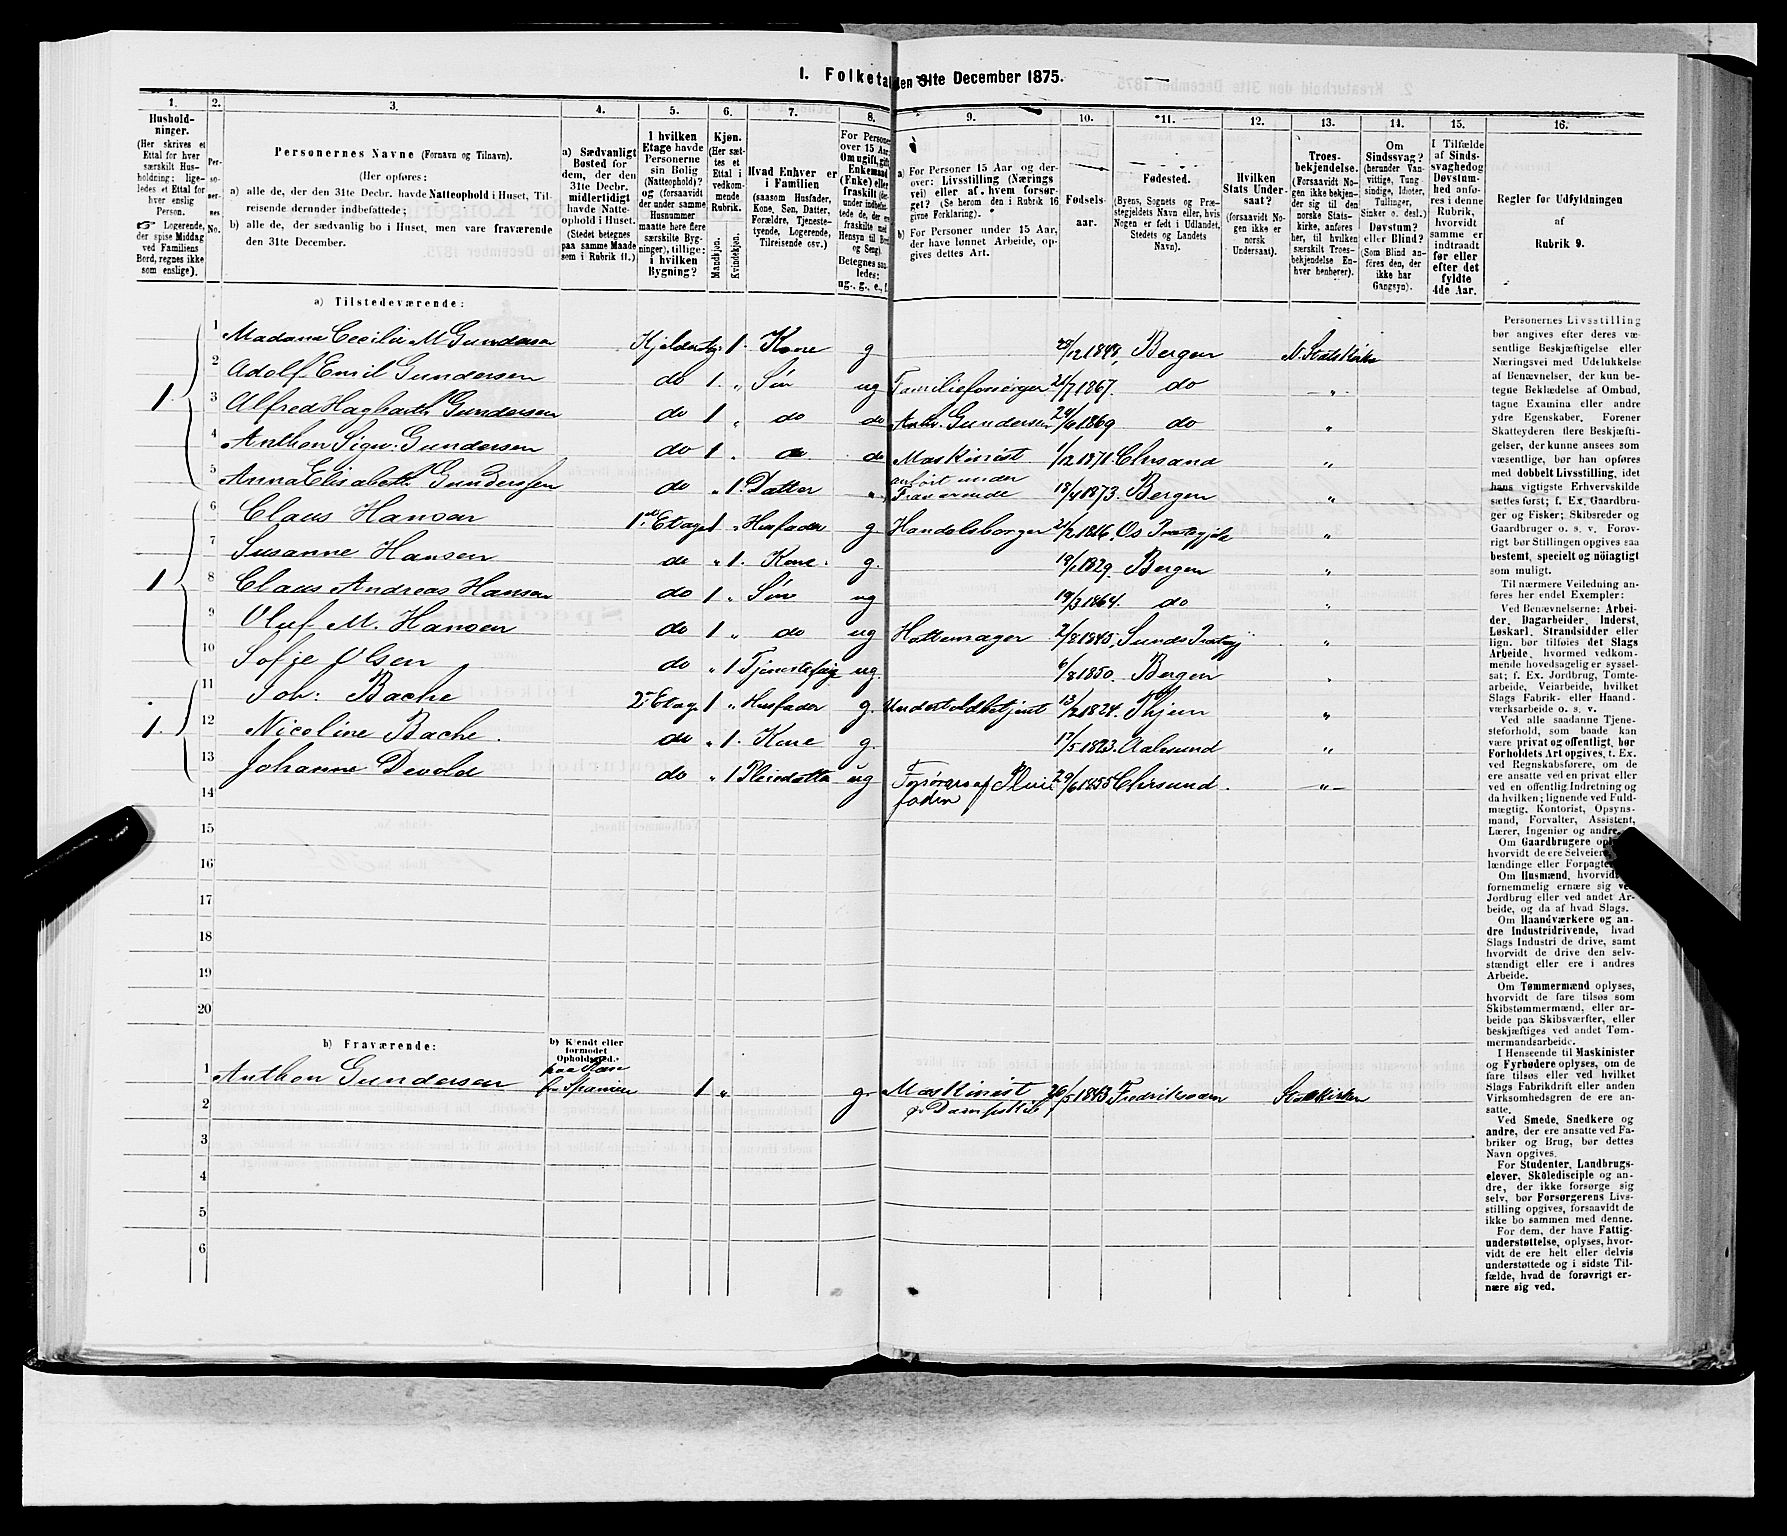 I. Folketal den 31te December 1875.
1. 2. 3. 4. 5. 6. 7. 8. 9. 10. 11. 12. 13. 14. 15. 16.
Hushold-
ninger.
(Her skrives et
Ettal for hver
særskilt Hus-
holdning; lige-
ledes et Ettal for
hver enslig
Person.
Logerende,
der spise Middag
ved Familiens
Bord, regnes ikke
som enslige).
Per-
so-
ner-
nes
No.
Personernes Navne (Fornavn og Tilnavn).
(Her opføres:
a) alle de, der den 31te Decbr. havde Natteophold i Huset, Til-
reisende derunder indbefattede;
b) alle de, der sædvanlig bo i Huset, men vare fraværende
den 31te December.
a) Sædvanligt
Bosted for
dem, der den
31te Decbr.
midlertidigt
havde Natte-
ophold i Huset.
(Stedet betegnes
paa samme Maade
som i Rubrik 11.)
I hvilken
Etage havde
Personerne
sin Bolig
(Natteophold)?
og (forsaavidt
der under samme
Husnummer
maatte høre flere
særskilte Byg-
ninger), tillige:
i hvilken
Bygning?
Kjøn.
(Her sæt-
tes et
Ettal i
vedkom-
mende
Rubrik.
Mandkjøn.
Kvindekjøn.
Hvad Enhver er
i Familien
(saasom Husfader,
Kone, Søn, Datter,
Forældre, Tjeneste-
tyende, Logerende,
Tilreisende osv.)
For Personer
over 15 Aar:
Om ugift, gift,
Enkemand
(Enke) eller
fraskilt
Betegnes saa-
ledes:
ug., g., e., f.
a) For Personer 15 Aar og der-
over: Livsstilling (Nærings-
vei) eller af, hvem forsør-
get? (Se herom den i Rubrik 16
givne Forklaring).
b) For Personer under 15 Aar,
der have lønnet Arbeide, op-
gives dettes Art.
Fødsels-
aar.
Fødested.
(Byens, Sognets og Præ-
stegjeldets Navn eller, hvis
Nogen er født i Udlandet,
Stedets og Landets
Navn).
Hvilken
Stats Under-
saat?
(forsaavidt No-
gen ikke er
norsk
Undersaat).
Troes-
bekjendelse.
(Forsaavidt No-
gen ikke bekjen-
der sig til den
norske Stats-
kirke, anføres
her, til hvilken
særskilt Troes-
bekjendelse En-
hver henhører).
Om
Sindssvag?
(herunder Van-
vittige, Tung-
sindige, Idioter,
Tullinger,
Sinker o. desl.)
Døvstum?
eller Blind?
(Som Blind an-
føres den, der
ikke har
Gangsyn).
I Tilfælde
af Sinds-
svaghed og
Døvstum-
hed anfø-
res i denne
Rubrik,
hvorvidt
samme er
indtraadt
før eller
efter det
fyldte
4de Aar.
Regler for Udfyldningen
af
Rubrik 9.
a) Tilstedeværende:
1 Madame Cecilie M Gundersen Kjelder " 1. Kone g 28/12 1848, Bergen N. Statskirke
2 Adolf Emil Gundersen do 1. " Søn ug Familieforsørger 21/7 1867. do "
3 Alfred Hagbarth Gundersen do 1 " do do Anth. Gundersen 24/6 1869 do "
4 Anthon Sigv: Gundersen do 1 " do do Maskinist 1/12 1871 Chrsand "
5 Anna Elisabeth Gundersen do " 1. Datter " anført under Fraværende 18/4 1873. Bergen "
6 Claus Hansen 1ste Etage 1 " Husfader g Handelsborger 21/2 1816, Os Præstegjeld "
7 Susanne Hansen do " 1. Kone. g. 19/1 1829. Bergen "
8 Claus Andreas Hansen do 1 " Søn ug 19/3 1864. do "
9 Oluf M. Hansen do 1 " do ug Hattemager 2/8 1845, Sunds "
10 Sofie Olsen do " 1 ug. 6/8 1850. Bergen "
11 Joh: Bache 2. Etage 1 " Husfader g. Undertoldbetjent 13/2 1824. "
12 Nicoline Bache. do " 1. Kone g. 17/5 1823. Aalesund "
13 Johanne Devold do " 1 Pleiedatter ug Forsørges af Pleie- 29/6 1855 Chrsund. "
fader
14
15
16
17
18
19
20
b) Fraværende:
b) Kjendt eller
formodet
Opholdssted.
1 Anthon Gundersen paa Reise fra Spanien 1 " g. Maskinist 26/5 1843. Fredriksværn Statskirken
Dampskib
2
3
4
5
6
Personernes Livsstilling
bør angives efter deres væ-
sentlige Beskjæftigelse eller
Næringsvei med Udelukkelse
af Benævnelser, der kun be-
tegne Beklædelse af Ombud,
tagne Examina eller andre
ydre Egenskaber. Forener
Skatteyderen flere Beskjæfti-
gelser, der kunne ansees som
væsentlige, bør han opføres
med dobbelt Livsstilling, idet
hans vigtigste Erhvervskilde
sættes først; f. Ex. Gaardbru-
ger og Fisker; Skibsreder og
Gaardbruger o. s. v. Forøv-
rigt bør Stillingen opgives saa
bestemt, specielt og nøiagtigt
som muligt.
Til nærmere Veiledning an-
føres her endel Exempler:
Ved Benævnelserne: Arbei-
der, Dagarbeider, Inderst,
Løskarl, Strandsidder eller
lign. bør tilføies det Slags
Arbeide, hvormed vedkom-
mende hovedsagelig er syssel-
sat; f. Ex. Jordbrug, Tomte-
arbeide, Veiarbeide, hvilket
Slags Fabrik- eller Haand-
værksarbeide o. s. v.
Ved alle saadanne Tjene-
steforhold, som baade kan
være privat og offentligt, bør
Forholdets Art opgives, t. Ex.
ved Regnskabsførere, om de
ere ansatte ved en privat eller
ved en offentlig Indretning og
da hvilken; lignende ved Fuld-
mægtig, Kontorist, Opsyns-
mand, Forvalter, Assistent,
Lærer, Ingeniør og andre.
Om Gaardbrugere
hvorvidt de ere Selveiere,
lændinge eller
Om Husmænd, hvorvidt
fornemmelig ernære sig ved
Jordbrug eller ved andet Ar-
beide, og da af hvad Slags.
Om Haandværkere og an-
dre Industridrivende, hvad
Slags Industri de drive, samt
hvorvidt de drive den selv-
stændigt eller ere i andres
Arbeide.
Om Tømmermænd oplyses,
hvorvidt de fare tilsøs som
Skibstømmermænd, eller ar-
beide paa Skibsværfter, eller
beskjæftiges ved andet Tøm-
mermandsarbeide.
I Henseende til Maskinister
og Fyrbødere oplyses, om de
fare tilsøs eller ved hvilket
Slags Fabrikdrift eller anden
Virksomhedsgren de ere an-
satte.
Ved Smede, Snedkere og
andre, der ere ansatte ved Fa-
briker og Brug, bør dettes
Navn opgives.
For Studenter, Landbrugs-
elever, Skoledisciple og an-
dre, der ikke forsørge sig
selv, bør Forsørgerens Livs-
stilling opgives, forsaavidt de
ikke bo sammen med denne.
For dem, der have Fattig-
understøttelse, oplyses, hvor-
vidt de ere helt eller delvis
understøttede og i sidste Til-
fælde, hvad de forøvrigt er-
nære sig ved.